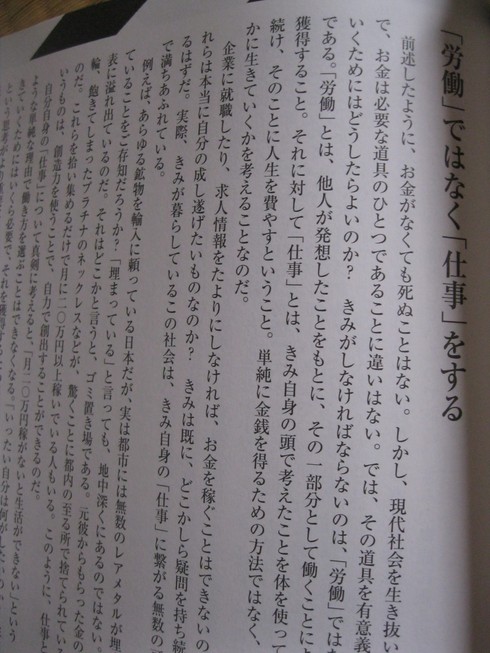 「労働」ではなく「仕事」をする
前述したように、お金がなくても死ぬことはない。しかし、現代社会を生き抜い
で、お金は必要な道具のひとつであることに違いはない。では、その道具を有意義
いくためにはどうしたらよいのか? きみがしなければならないのは、「労働」ではな
である。「労働」とは、他人が発想したことをもとに、その一部分として働くことによ
獲得すること。それに対して「仕事」とは、きみ自身の頭で考えたことを体を使って
続け、そのことに人生を費やすということ。単純に金銭を得るための方法ではなく、
かに生きていくかを考えることなのだ。
企業に就職したり、求人情報をたよりにしなければ、お金を稼ぐことはできないの
れらは本当に自分の成し遂げたいものなのか? きみは既に、どこかしら疑問を持ち続
るはずだ。実際、きみが暮らしているこの社会は、きみ自身の「仕事」に繋がる無数の
で満ちあふれている。
例えば、あらゆる鉱物を輸入に頼っている日本だが、実は都市には無数のレアメタルが埋
ていることをご存知だろうか?「埋まっている」と言っても、地中深くにあるのではない。
表に溢れ出ているのだ。それはどこかと言うと、ゴミ置き場である。元彼からもらった金の
輪、飽きてしまったプラチナのネックレスなどが、驚くことに都内の至る所で捨てられている
のだ。これらを拾い集めるだけで月に二〇万円以上稼いでいる人もいる。このように、仕事と
いうものは、創造力を使うことで、自力で創出することができるのだ。
自分自身の「仕事」について真剣に考えると、「月二〇万円稼がないと生活ができない」という
ような単純な理由で働き方を選ぶことはできなくなる。「いったい自分は何が
きていくためにはいくら必要で、それを獲得する
という思考が